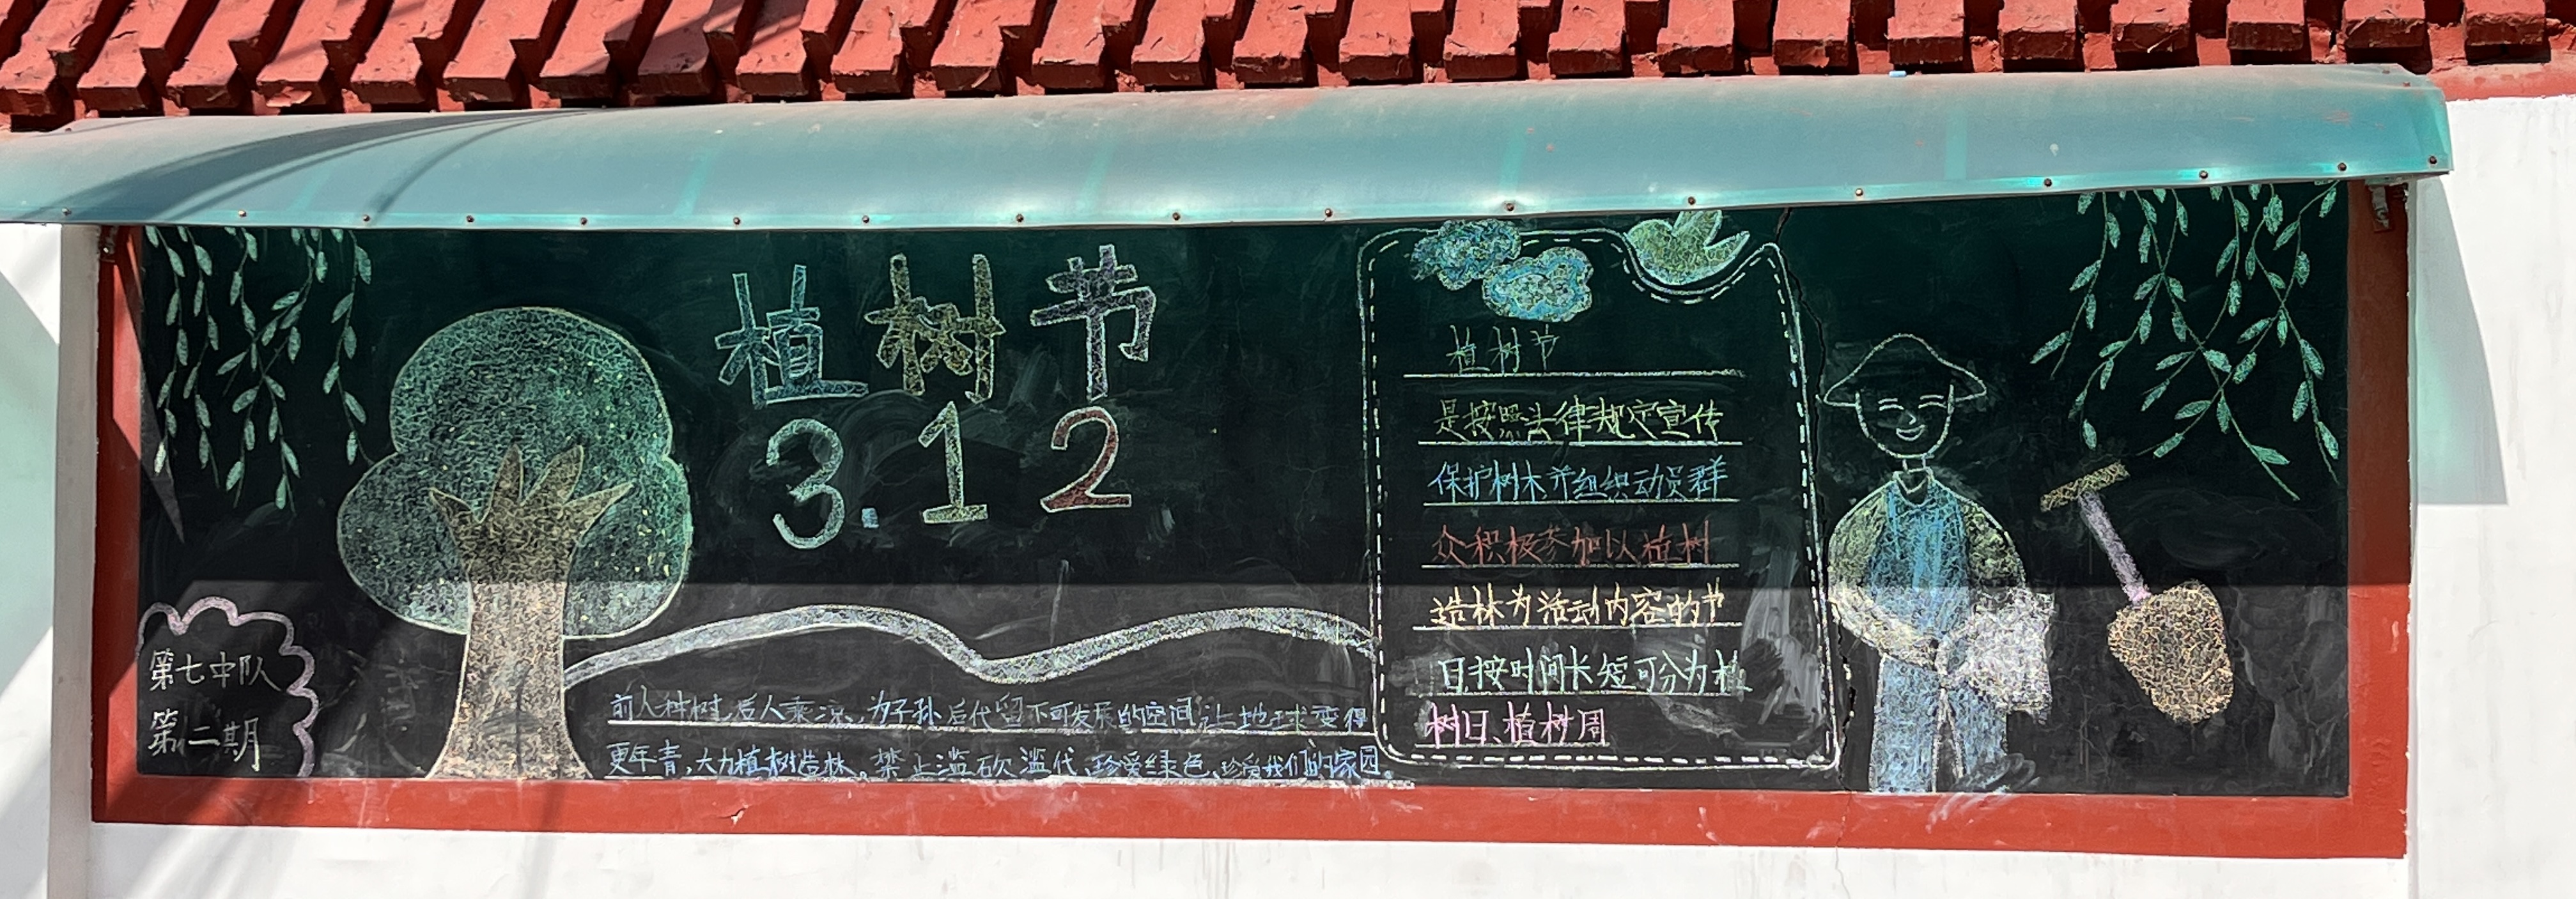 植树节
3.12
第七中队
第二期
前人种树,后人乘凉、为子孙后代留下可发展的空间,让地球变得
更年青,大力植树造林。禁止滥砍滥伐、珍爱绿色、珍爱我们的家园。
植树节
是按照法律规定宣传
保护树木并组织动员群
众积极参加以植树
造林为活动内容的节
日,按时间长短可分为植
树日、植树周